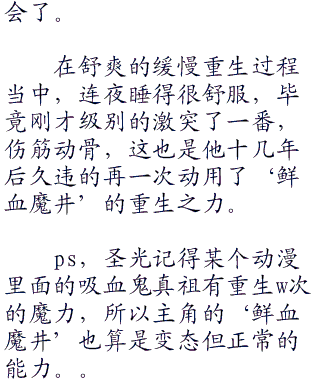 会了。
在舒爽的缓慢重生过程
当中，连夜睡得很舒服，毕
竟刚才级别的激突了一番，
伤筋动骨，这也是他十几年
后久违的再一次动用了‘鲜
血魔井’的重生之力。
ps，圣光记得某个动漫
里面的吸血鬼真祖有重生w次
的魔力，所以主角的‘鲜血
魔井’也算是变态但正常的
能力。。